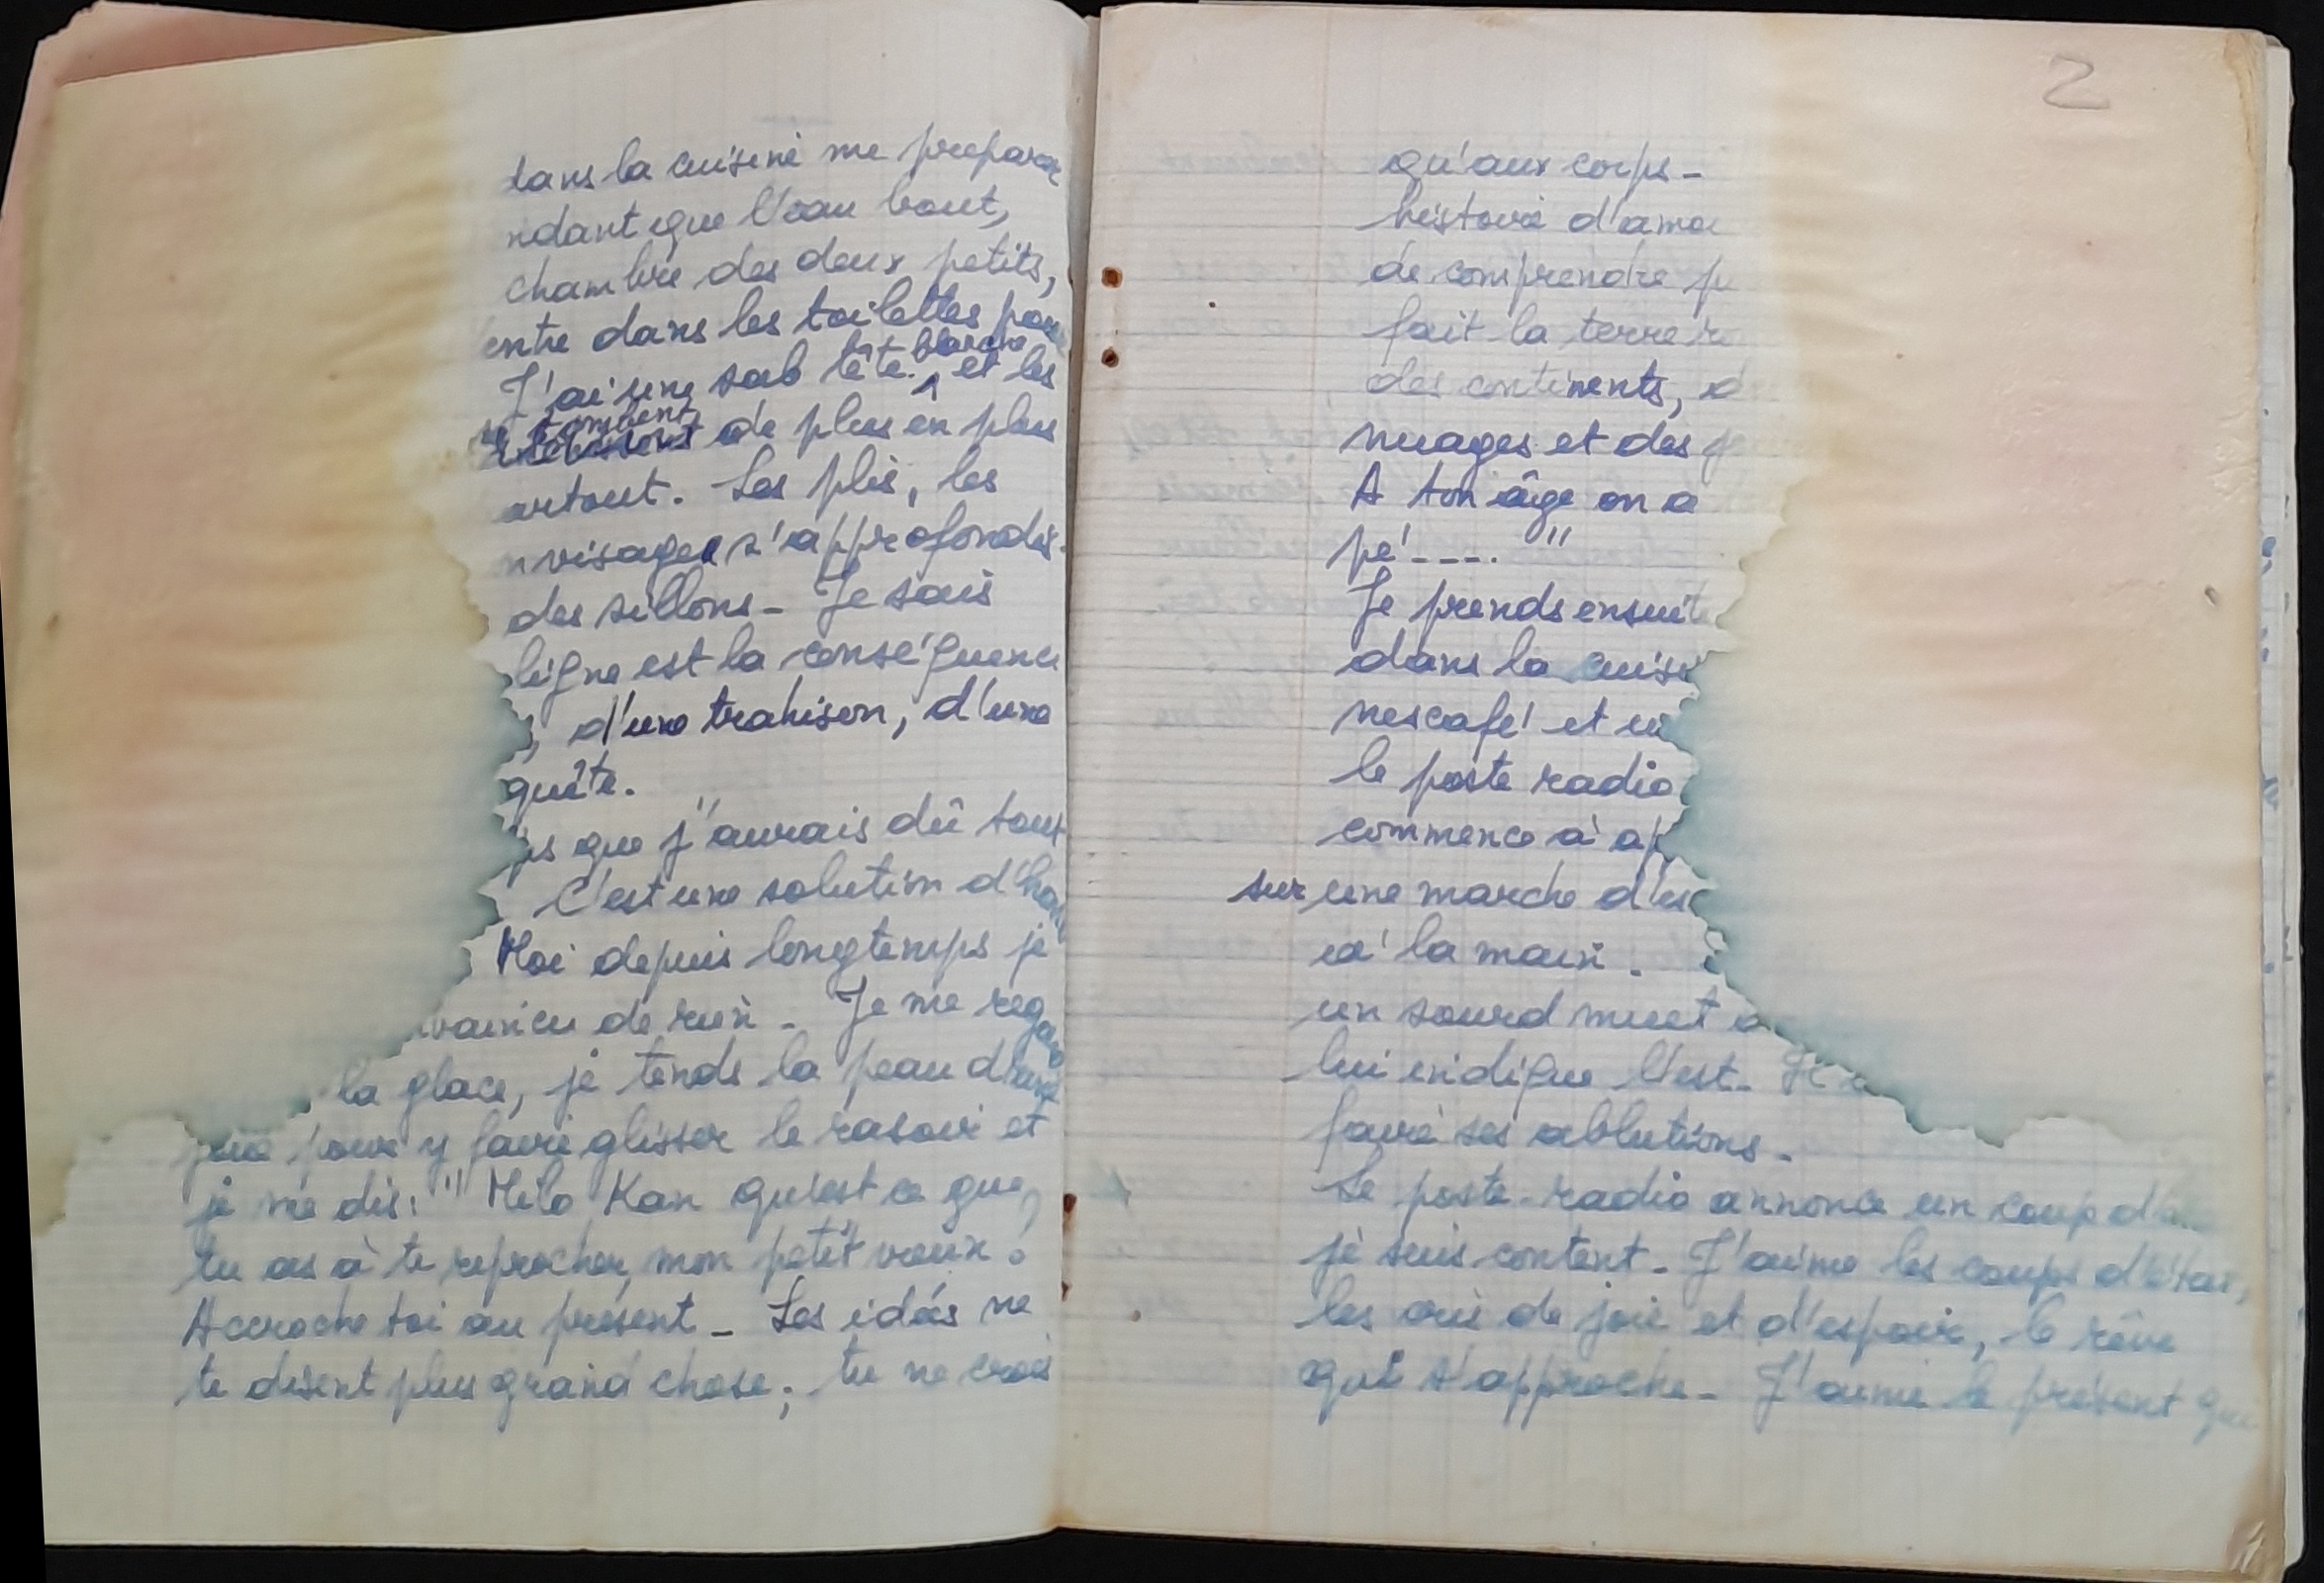 dans la cuisine me préparer
ndant que l'eau bout,
chambre des deux petits,
entre dans les toilettes pour
blanche
J'ai une sab tête. ^ et les
se tombent
de plus en plus
artout. Les plis, les
n visage s'approfondis-
des sillons - Je sais
ligne est la conséquence
, d'une trahison, d'une
quête.
is que j'aurais dû tout
C'est une solution d'hom
Moi depuis longtemps je
vaincu de rien - Je me regard
la glace, je tends la peau d'une
joue pour y faire glisser le rasoir et
je me dis: " Milo Kan qu'est ce que
tu as à te reprocher, mon petit vieux ?
Accroche toi au présent - Les idées ne
te disent plus grand chose; tu ne crois
2
qu'aux corps -
histoire d'amou
de comprendre p
fait la terre r
des continents, d
nuages et des
A ton âge on a
pé'----. "
Je prends ensuite
dans la cuisi
nescafé et u
le poste radio
commence à ap
sur une marche d'es
à la main.
un sourd muet a
lui indique l'est. Je
faire ses ablutions -
Le poste-radio annonce un coup d'
je suis content - J'aime les coups d'état,
les cris de joie et d'espoir, le rêve
qui s'approche - J'aime le présent que